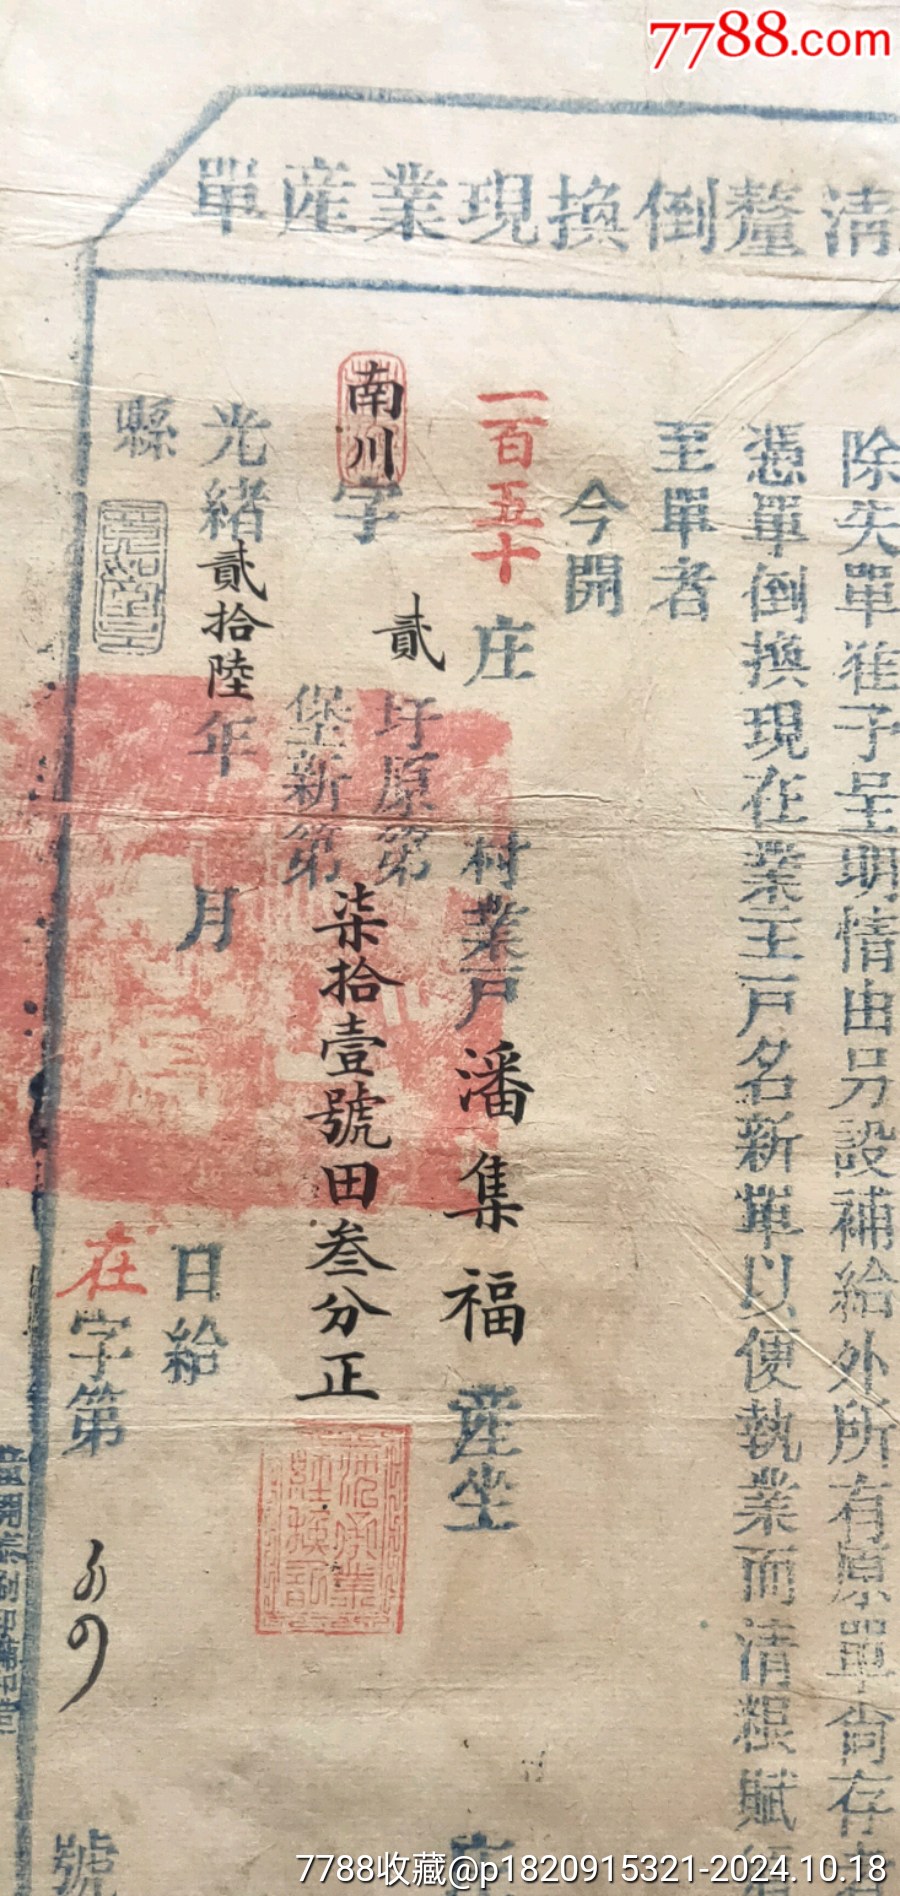 7788.com
清釐倒換現業産單
除失單准予呈明情由另設補給外所有原單尚存
憑單倒換現在業主戶名新單以便執業而清糧賦
至單者
今開
一百五十庄 村業戶潘集福 産坐
南川字貳圩原第
堡新第
柒拾壹號田叁分正
光緒貳拾陸年 月 日給
縣
在字第 號
7788收藏@p1820915321-2024.10.18